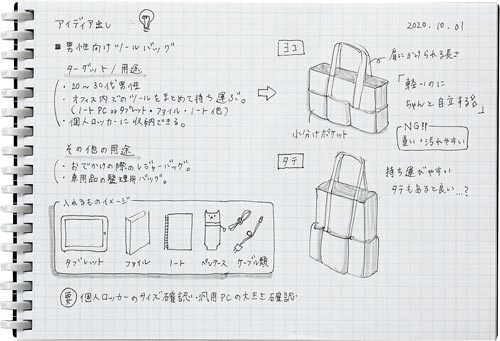 アイディア出し
2020.10.01
■男性向けツールバッグ
ターゲット/用途
・20~30代男性
・オフィス内でのツールをまとめて持ち運ぶ。
(ノートPC orタブレット・ファイル・ノート他)
・個人ロッカーに収納できる。
その他の用途
・おでかけの際のレジャーバッグ。
・専用品の整理用バッグ。
入れるものイメージ
タブレット
ファイル
ノート
ペンケース
ケーブル類
要 個人ロッカーのサイズ確認・汎用PCの大きさ確認
ヨコ
肩にかけられる長さ
「軽いのに
ちゃんと自立する」
小分けポケット
NG!!
重い・汚れやすい
タテ
持ち運びやすい
タテもあると良い…?